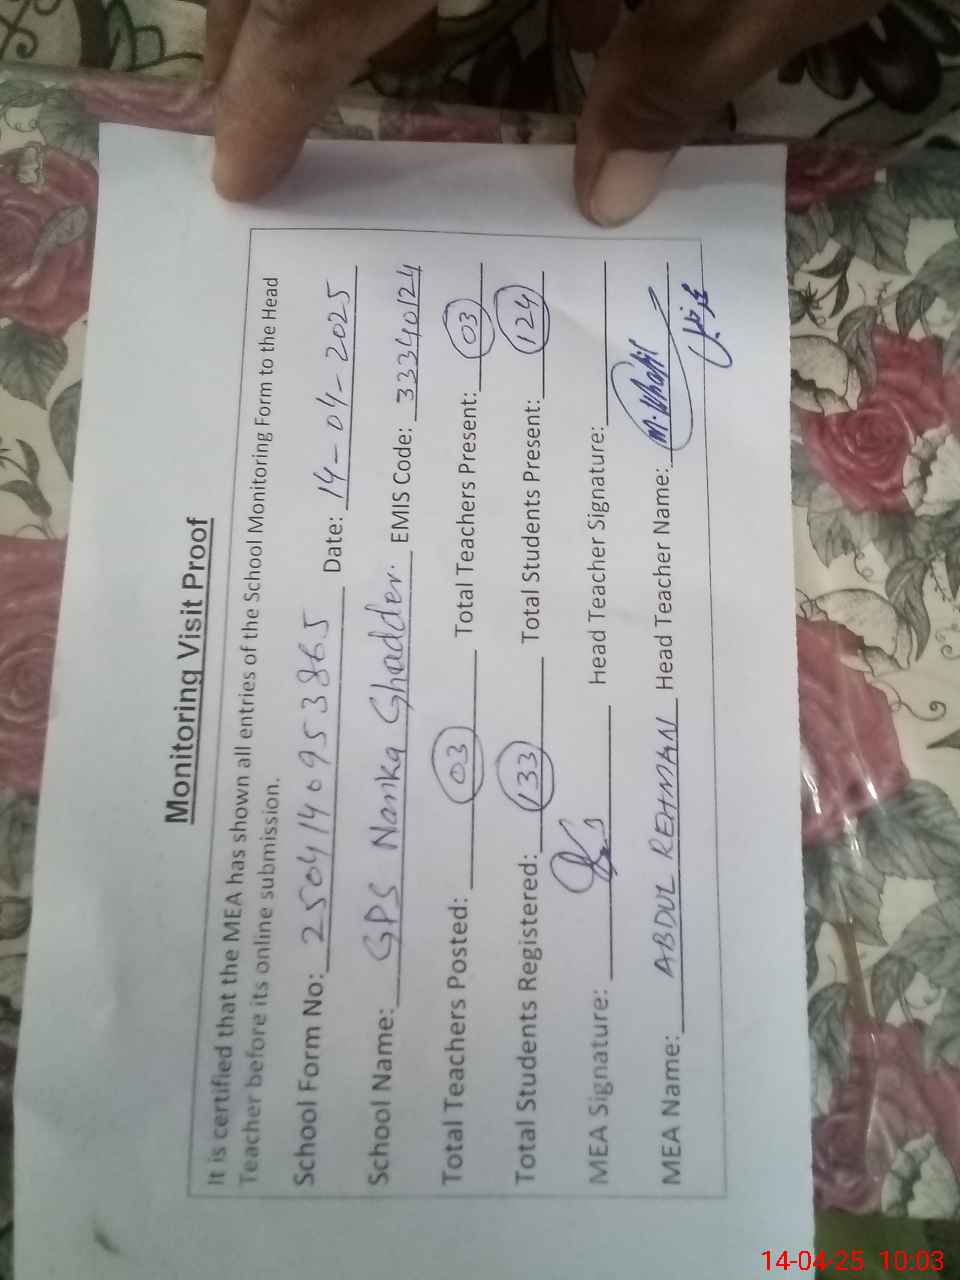 Monitoring Visit Proof
It is certified that the MEA has shown all entries of the School Monitoring Form to the Head
Teacher before its online submission.
School Form No: 2504140953865 Date: 14-04-2025
School Name: GPS Nanka Ghadder. EMIS Code: 33340124
Total Teachers Posted: 03 Total Teachers Present: 03
Total Students Registered: 133 Total Students Present: 124
MEA Signature: Head Teacher Signature:
MEA Name: ABDUL REHMAN Head Teacher Name:
14-04-25 10:03